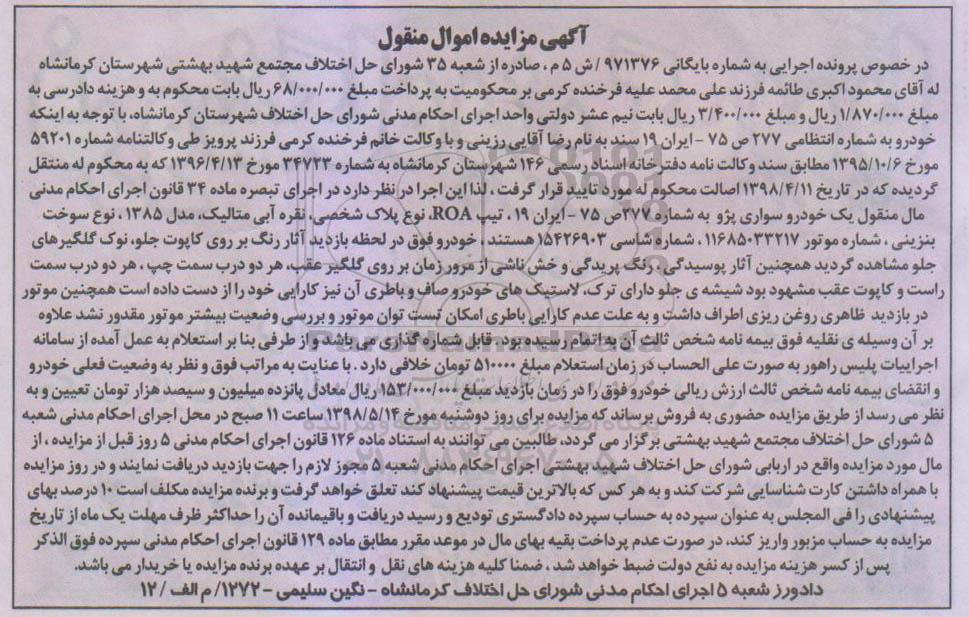 آگهی مزایده اموال منقول
در خصوص پرونده اجرایی به شماره بایگانی ۹۷۱۳۷۶ / ش ۵ م ، صادره از شعبه ۳۵ شورای حل اختلاف مجتمع شهید بهشتی شهرستان کرمانشاه
له آقای محمود اکبری طائمه فرزند علی محمد علیه فرخنده کرمی بر محکومیت به پرداخت مبلغ ۶۸/۰۰۰/۰۰۰ ریال بابت محکوم به و هزینه دادرسی به
مبلغ ۱/۸۷۰/۰۰۰ ریال و مبلغ ۳/۴۰۰/۰۰۰ ریال بابت نیم عشر دولتی واحد اجرای احکام مدنی شورای حل اختلاف شهرستان کرمانشاه، با توجه به اینکه
خودرو به شماره انتظامی ۲۷۷ ص ۷۵ - ایران ۱۹ سند به نام رضا آقایی رزینی و با وکالت خانم فرخنده کرمی فرزند پرویز طی وکالتنامه شماره ۵۹۲۰۱
مورخ ۱۳۹۵/۱۰/۶ مطابق سند وکالت نامه دفترخانه اسناد رسمی ۱۴۶ شهرستان کرمانشاه به شماره ۳۴۷۲۳ مورخ ۱۳۹۶/۴/۱۳ که به محکوم له منتقل
گردیده که در تاریخ ۱۳۹۸/۴/۱۱ اصالت محکوم له مورد تایید قرار گرفت ، لذا این اجرا در نظر دارد در اجرای تبصره ماده ۳۴ قانون اجرای احکام مدنی
مال منقول یک خودرو سواری پژو به شماره ۲۷۷ص ۷۵ - ایران ۱۹ ، تیپ ROA، نوع پلاک شخصی، نقره آبی متالیک، مدل ۱۳۸۵ ، نوع سوخت
بنزینی ، شماره موتور ۱۱۶۸۵۰۳۳۲۱۷ ، شماره شاسی ۱۵۴۲۶۹۰۳ هستند ، خودرو فوق در لحظه بازدید آثار رنگ بر روی کاپوت جلو، نوک گلگیرهای
جلو مشاهده گردید همچنین آثار پوسیدگی ، رنگ پریدگی و خش ناشی از مرور زمان بر روی گلگیر عقب، هر دو درب سمت چپ ، هر دو درب سمت
راست و کاپوت عقب مشهود بود شیشه ی جلو دارای ترک، لاستیک های خودرو صاف و باطری آن نیز کارایی خود را از دست داده است همچنین موتور
در بازدید ظاهری روغن ریزی اطراف داشت و به علت عدم کارایی باطری امکان تست توان موتور و بررسی وضعیت بیشتر موتور مقدور نشد علاوه
بر آن وسیله ی نقلیه فوق بیمه نامه شخص ثالث آن به اتمام رسیده بود، قابل شماره گذاری می باشد و از طرفی بنا بر استعلام به عمل آمده از سامانه
اجراییات پلیس راهور به صورت علی الحساب در زمان استعلام مبلغ ۵۱۰۰۰۰ تومان خلافی دارد . با عنایت به مراتب فوق و نظر به وضعیت فعلی خودرو
و انقضای بیمه نامه شخص ثالث ارزش ریالی خودرو فوق را در زمان بازدید مبلغ ۱۵۳/۰۰۰/۰۰۰ ریال معادل پانزده میلیون و سیصد هزار تومان تعیین و به
نظر می رسد از طریق مزایده حضوری به فروش برساند که مزایده برای روز دوشنبه مورخ ۱۳۹۸/۵/۱۴ ساعت ۱۱ صبح در محل اجرای احکام مدنی شعبه
۵ شورای حل اختلاف مجتمع شهید بهشتی برگزار می گردد، طالبین می توانند به استناد ماده ۱۲۶ قانون اجرای احکام مدنی ۵ روز قبل از مزایده ، از
مال مورد مزایده واقع در اربابی شورای حل اختلاف شهید بهشتی اجرای احکام مدنی شعبه ۵ مجوز لازم را جهت بازدید دریافت نمایند و در روز مزایده
با همراه داشتن کارت شناسایی شرکت کند و به هر کس که بالاترین قیمت پیشنهاد کند تعلق خواهد گرفت و برنده مزایده مکلف است ۱۰ درصد بهای
پیشنهادی را فی المجلس به عنوان سپرده به حساب سپرده دادگستری تودیع و رسید دریافت و باقیمانده آن را حداکثر ظرف مهلت یک ماه از تاریخ
مزایده به حساب مزبور واریز کند، در صورت عدم پرداخت بقیه بهای مال در موعد مقرر مطابق ماده ۱۲۹ قانون اجرای احکام مدنی سپرده فوق الذکر
پس از کسر هزینه مزایده به نفع دولت ضبط خواهد شد ، ضمنا کلیه هزینه های نقل و انتقال بر عهده برنده مزایده یا خریدار می باشد.
دادورز شعبه ۵ اجرای احکام مدنی شورای حل اختلاف کرمانشاه - نگین سلیمی - ۱۲۷۲/ م الف / ۱۲